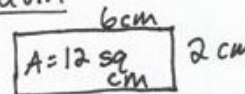 6cm
A=12 sq
cm
2 cm